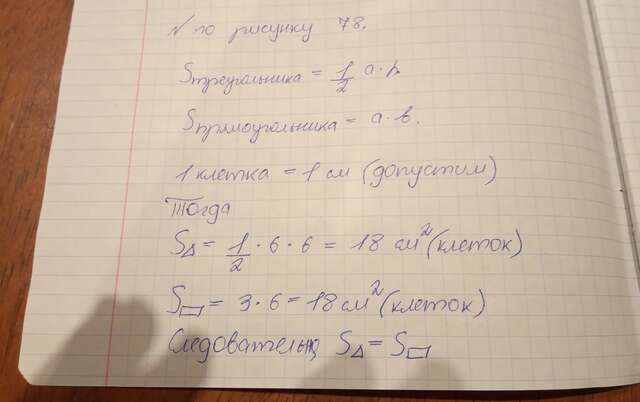 № по рисунку 78.
Sтреугольника = 1/2 a·h
Sпрямоугольника = a·b.
1 клетка = 1 см (допустим)
Тогда
S△ = 1/2 · 6 · 6 = 18 см² (клеток)
S▭ = 3·6 = 18 см² (клеток)
Следовательно, S△ = S▭